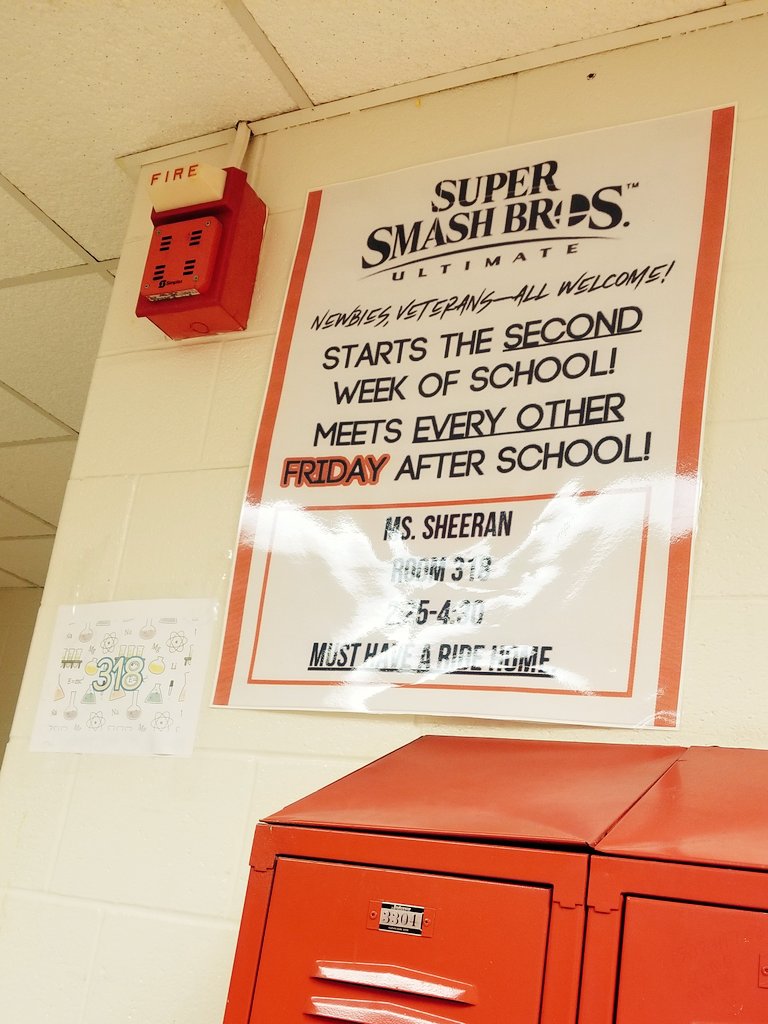 FIRE
SUPER
SMASH BROS.™
ULTIMATE
NEWBIES, VETERANS—ALL WELCOME!
STARTS THE SECOND
WEEK OF SCHOOL!
MEETS EVERY OTHER
FRIDAY AFTER SCHOOL!
MS. SHEERAN
ROOM 318
MUST HAVE A RIDE HOME
318
3304